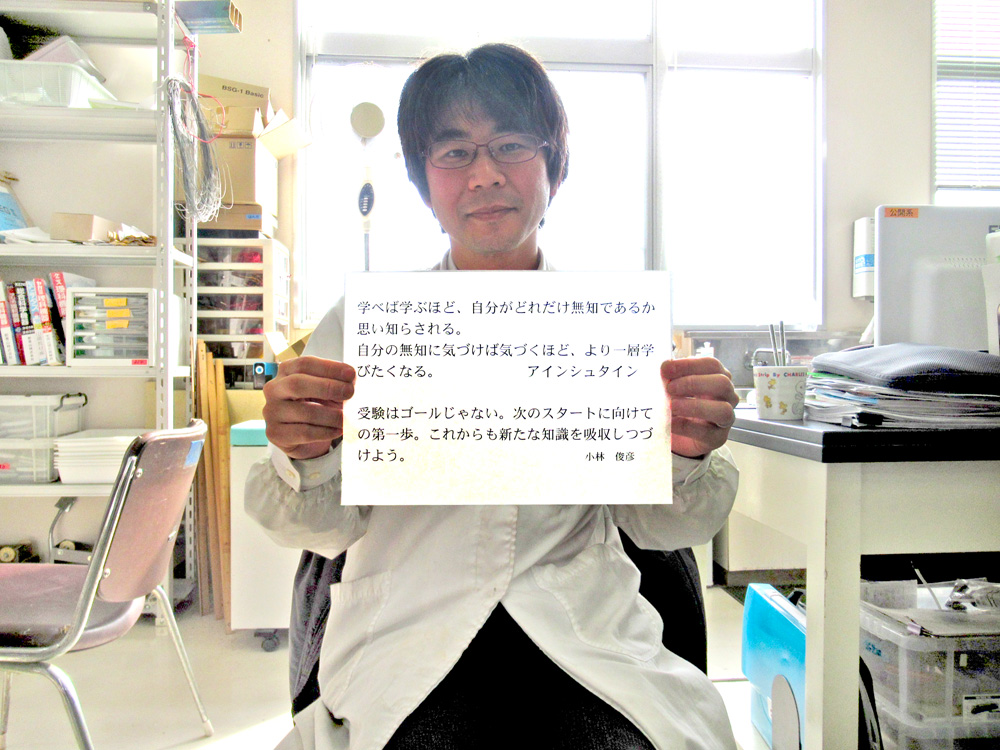 学べば学ぶほど、自分がどれだけ無知であるか
思い知らされる。
自分の無知に気づけば気づくほど、より一層学
びたくなる。 アインシュタイン
受験はゴールじゃない。次のスタートに向けて
の第一歩。これからも新たな知識を吸収しつづ
けよう。 小林 俊彦
BSG-1 Basic
公開系